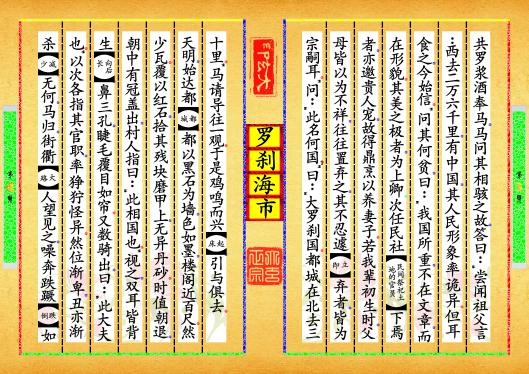 共罗浆酒奉马马问其相骇之故答曰：尝闻祖父言
：西去二万六千里有中国其人民形象率诡异但耳
食之今始信，问其何贫曰：我国所重不在文章而
在形貌其美之极者为上卿次任民社【民间祭祀土地的官员】下焉
者亦邀贵人宠故得鼎烹以养妻子若我辈初生时父
母皆以为不祥往往置弃之其不忍遽【立即】弃者皆为
宗嗣耳，问：此名何国，曰：大罗刹国都城在北去三
罗刹海市
十里，马请导往一观于是鸡鸣而兴【起床】引与俱去
天明始达都【城都】都以黑石为墙色如墨楼阁近百尺然
少瓦覆以红石拾其残块磨甲上无异丹砂时值朝退
朝中有冠盖出村人指曰：此相国也，视之双耳皆背
生【长向后】鼻三孔睫毛覆目如帘又数骑出曰：此大夫
也，以次各指其官职率狰狞怪异然位渐卑丑亦渐
杀【减少】无何马归街衢【大路】人望见之噪奔跌蹶【倒跌】如